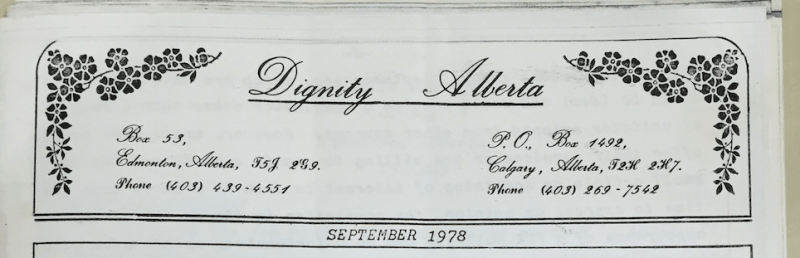 Dignity Alberta
Box 53,
Edmonton, Alberta, T5J 2G9.
Phone (403) 439-4551
P.O., Box 1492,
Calgary, Alberta, T2H 2H7.
Phone (403) 269-7542
SEPTEMBER 1978